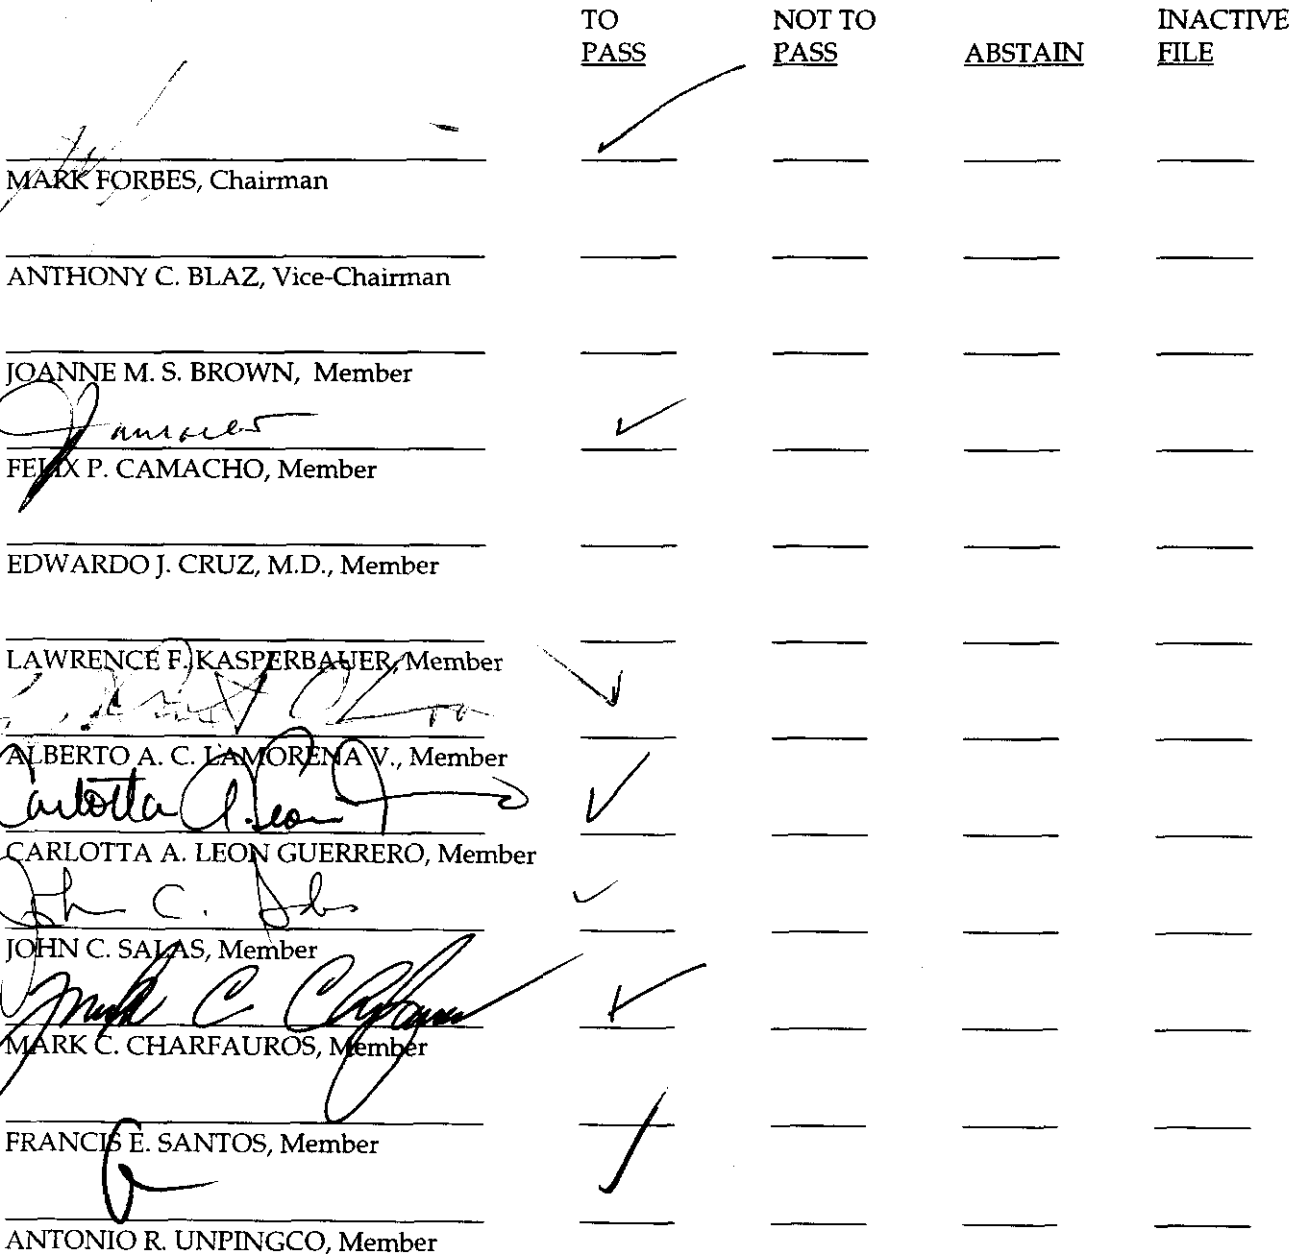 TO NOT TO INACTIVE
PASS PASS ABSTAIN FILE
MARK FORBES, Chairman
ANTHONY C. BLAZ, Vice-Chairman
JOANNE M. S. BROWN, Member
FELIX P. CAMACHO, Member
EDWARDO J. CRUZ, M.D., Member
LAWRENCE F. KASPERBAUER, Member
ALBERTO A. C. LAMORENA V., Member
Carlotta A. Leon
CARLOTTA A. LEON GUERRERO, Member
John C. Salas
JOHN C. SALAS, Member
Mark C. Charfauros
MARK C. CHARFAUROS, Member
FRANCIS E. SANTOS, Member
ANTONIO R. UNPINGCO, Member